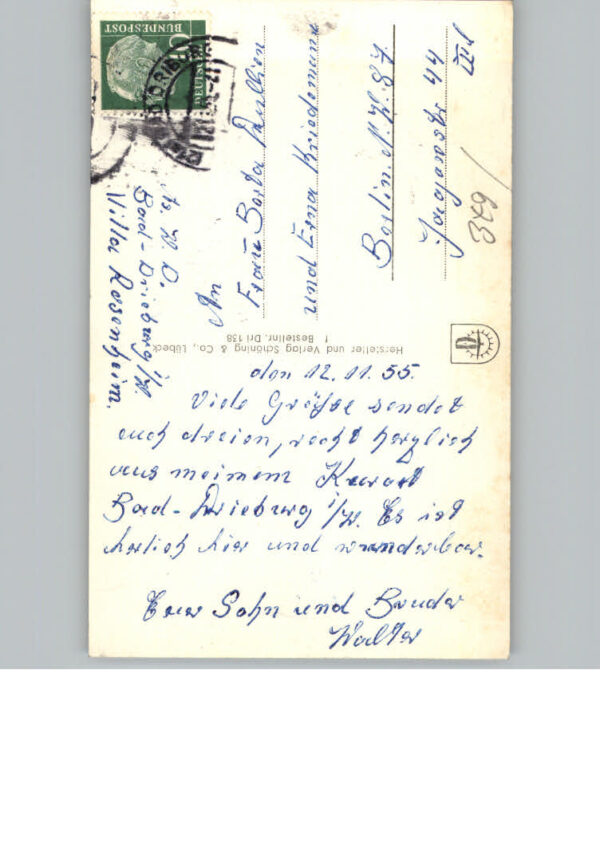 BUNDESPOST
An
Frau Berta
und Erna Kriedemann
Berlin N.W. 87
Jagowstr 44
III
379/
Abs. W. D.
Bad-Driburg i/W.
Villa Rosenheim.
Hersteller und Verlag Schöning & Co., Lübeck
Bestellnr. Dri 138
den 12. 11. 55.
Viele Grüße sendet
euch dreien, recht herzlich
aus meinem Kurort
Bad-Driburg i/W. Es ist
herlich hier und wunderbar.
Euer Sohn und Bruder
Walter